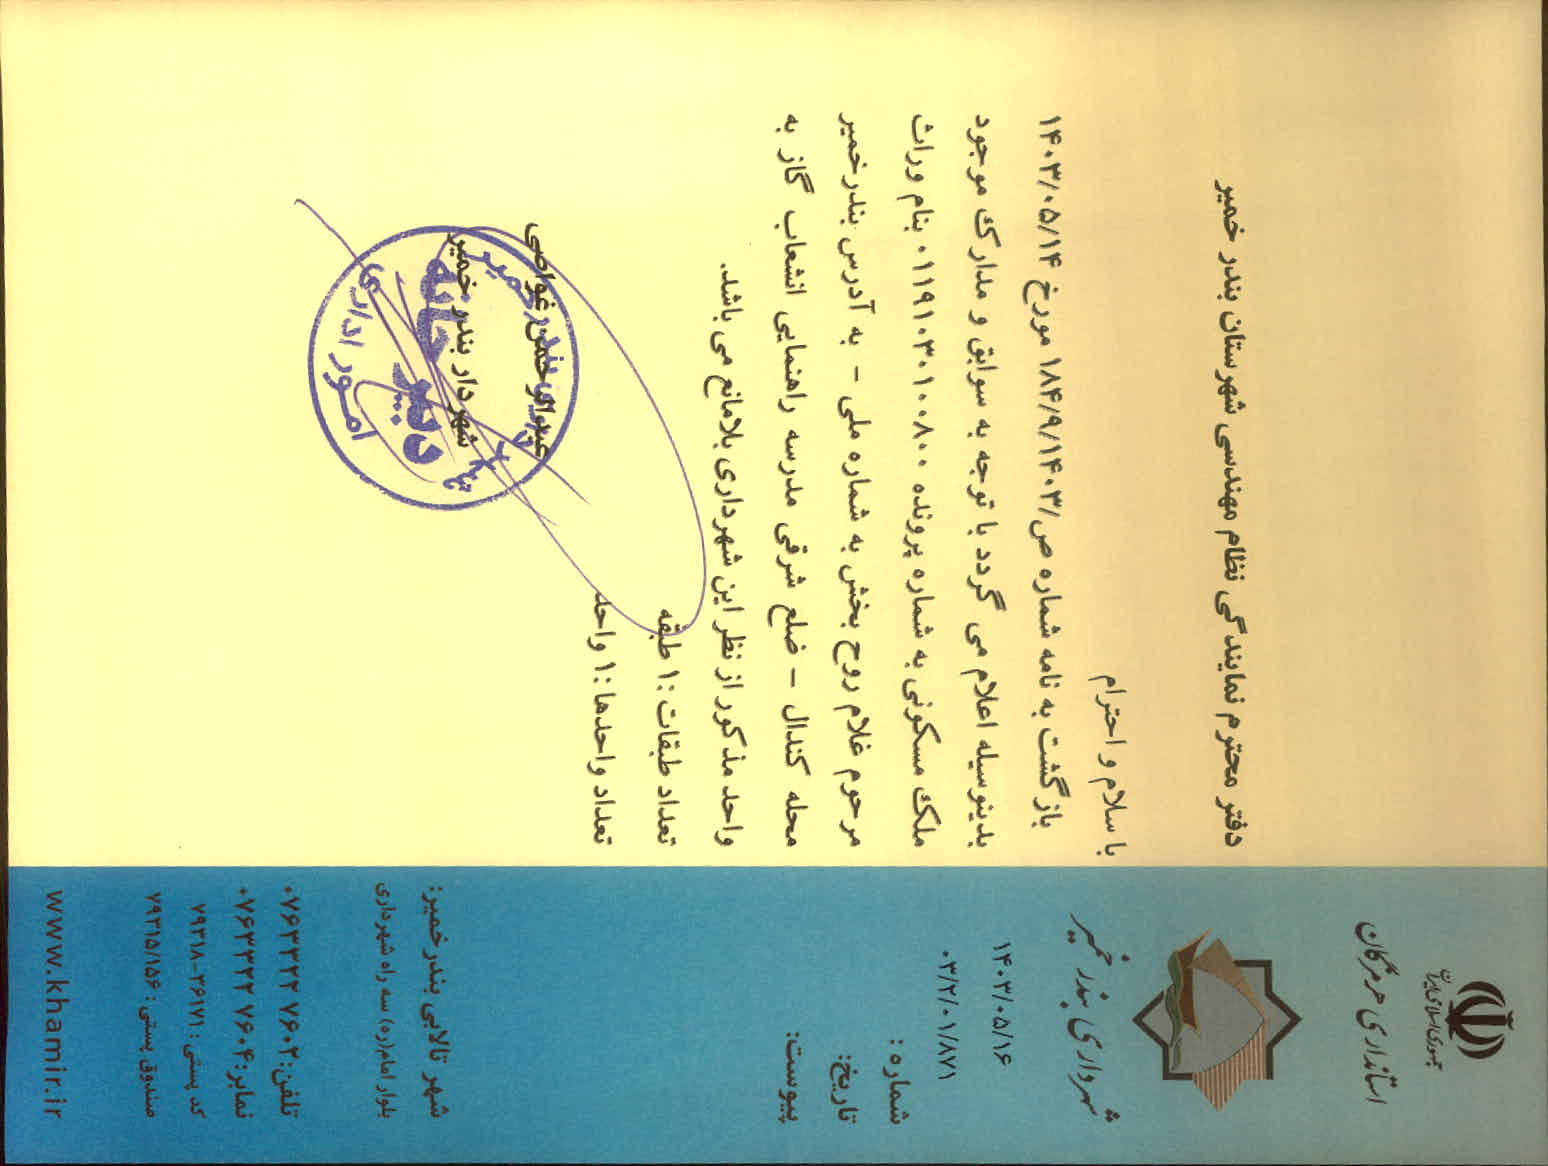 جمهوری اسلامی ایران
استانداری هرمزگان
شهرداری بندر خمیر
۱۴۰۳/۰۵/۱۶
۰۳/۲/۰۱/۸۷۱
شماره :
تاریخ:
پیوست:
شهر تالابی بندرخمیر:
بلوار امام(ره) سه راه شهرداری
تلفن: ۰۷۶۳۳۲۲ ۷۶۰۲
نمابر: ۰۷۶۳۳۲۲ ۷۶۰۴
کد پستی : ۳۶۱۷۱-۷۹۳۱۸
صندوق پستی : ۷۹۳۱۵/۱۵۶
www.khamir.ir
دفتر محترم نمایندگی نظام مهندسی شهرستان بندر خمیر
با سلام و احترام
بازگشت به نامه شماره ص/۱۸۴/۹/۱۴۰۳ مورخ ۱۴۰۳/۰۵/۱۴
بدینوسیله اعلام می گردد با توجه به سوابق و مدارک موجود
ملک مسکونی به شماره پرونده ۰۱۱۹۱۰۳۰۱۰۰۸۰۰ بنام وراث
مرحوم غلام روح بخش به شماره ملی - به آدرس بندرخمیر
محله کندال - ضلع شرقی مدرسه راهنمایی انشعاب گاز به
واحد مذکور از نظر این شهرداری بلامانع می باشد.
تعداد طبقات :۱ طبقه
تعداد واحدها :۱ واحد
غواصی
شهردار بندر خمیر
شهرداری بندر خمیر
دبیرخانه
امور اداری